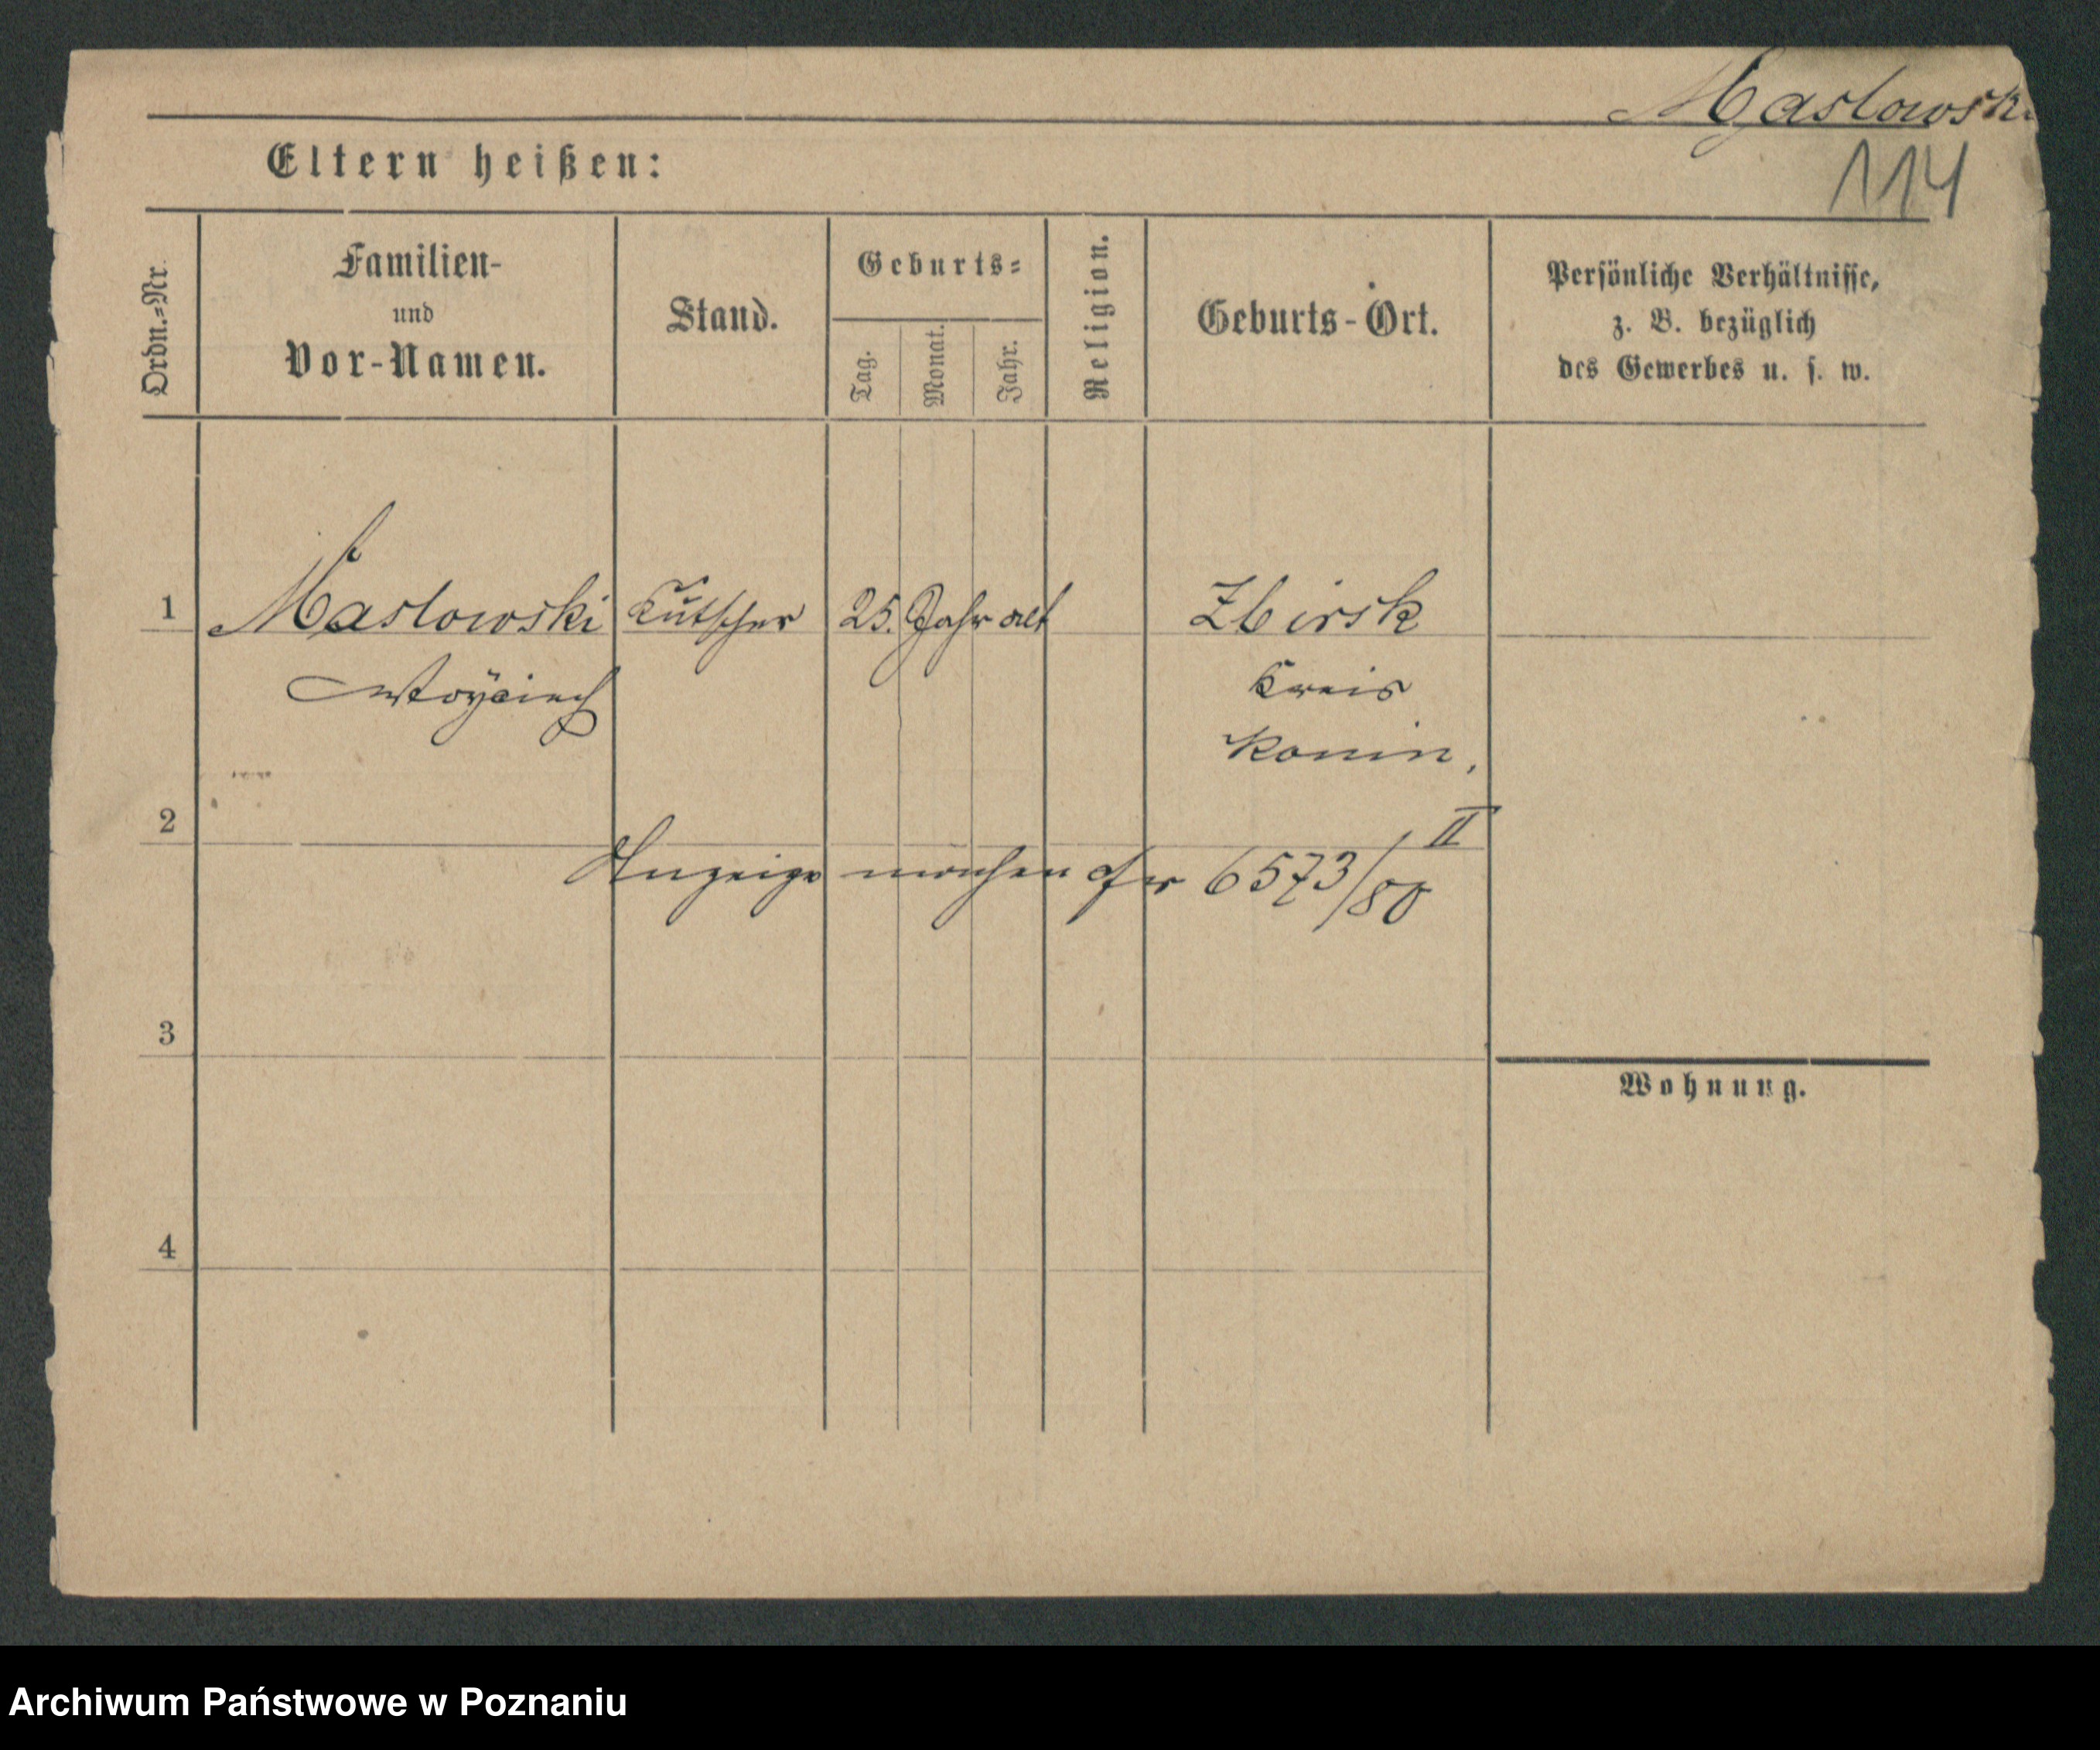 Maslowski
114
Eltern heißen:
Ordn.-Nr.
Familien-
und
Vor-Namen.
Stand.
Geburts-
Tag.
Monat.
Jahr.
Religion.
Geburts-Ort.
Persönliche Verhältnisse,
z. B. bezüglich
des Gewerbes u. s. w.
1 Maslowski Kutscher 25. Jahr alt Zbirsk
Woyciech Kreis
Konin,
2
II
Anzeige machen 6573/80
3
Wohnung.
4
Archiwum Państwowe w Poznaniu